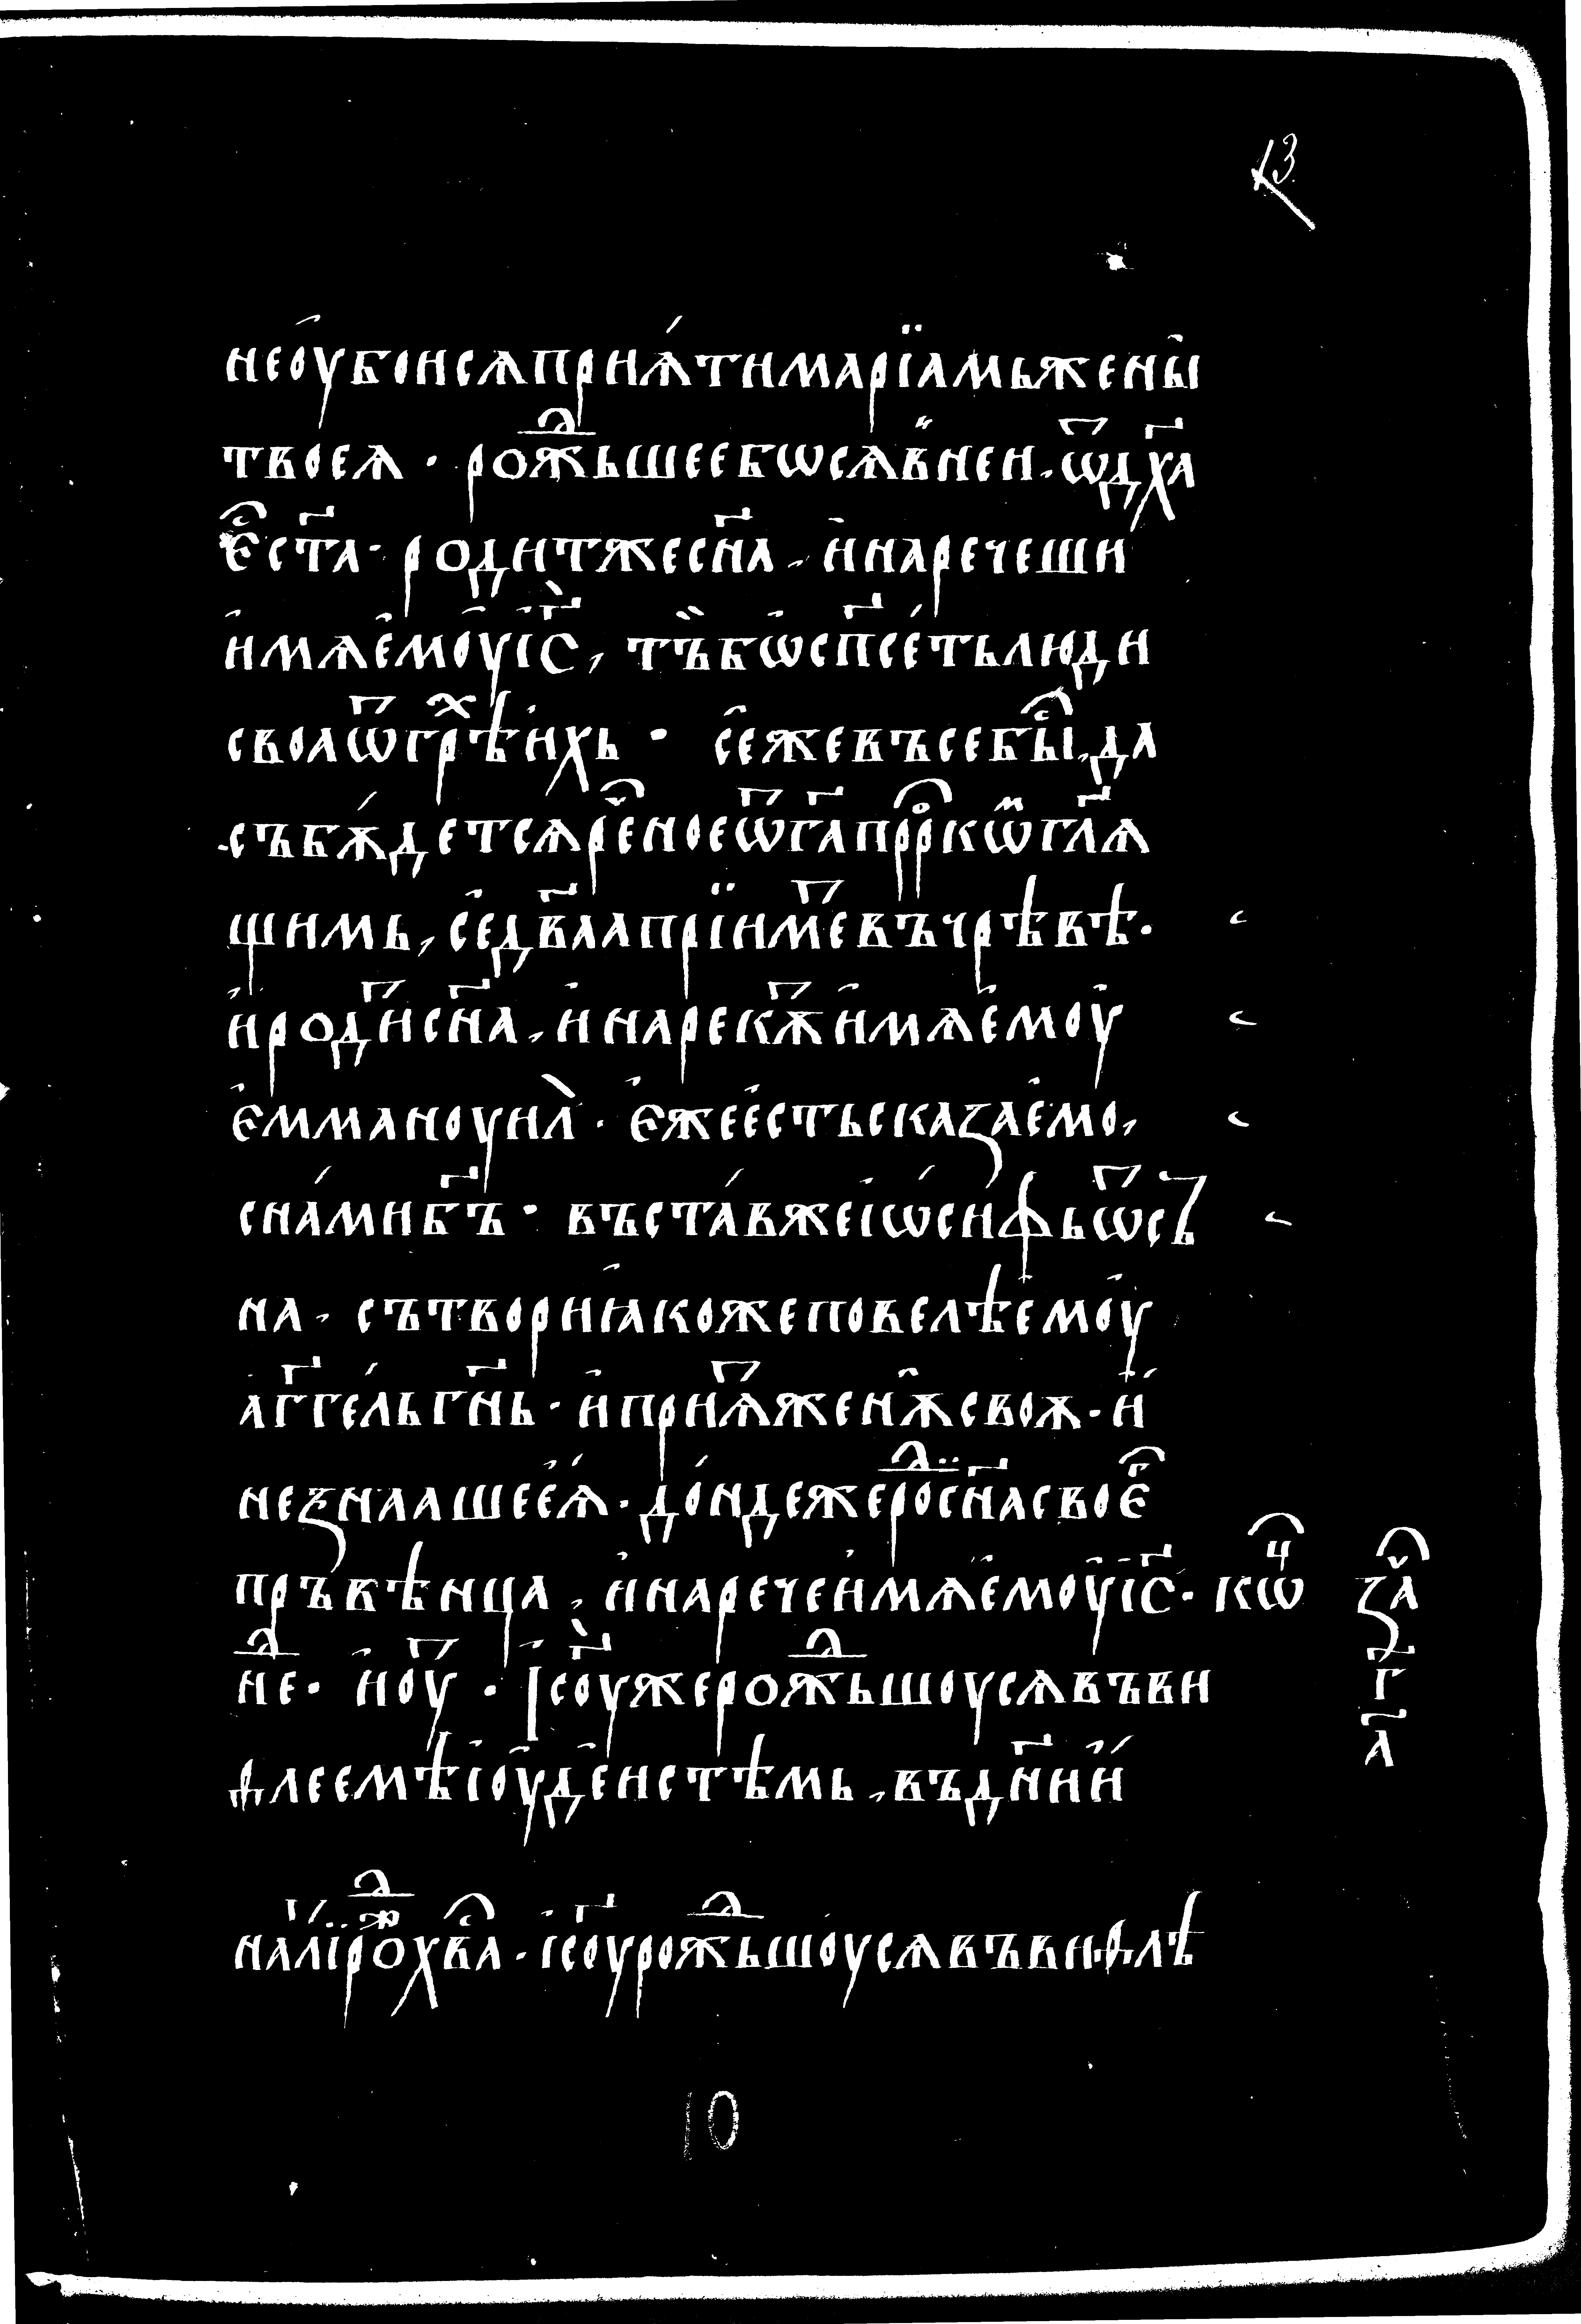 13
не оу҆боисѧ прїѧ́ти марїамь жены̀
твоеѧ · рож̾дьшее бѡ сѧ в̾ неи · ѿ дх҃а
є҆ст҃а · родит же сн҃а , и҆ наречеши
и҆мѧ є҆моу҆ і҆с҃ , тъ̏ бѡ̀ сп҃се́ть люди
своѧ ѿ грѣⷯи҆хь · се҆ же въсе быⷭ , да
събѫ́детсѧ реⷱ҇ное ѿ г҃а прⷪркѡⷨ гл҃ѧ
щимь , се҆ дв҃аа прїимеⷮ въ чрѣвѣ ·
и҆ родиⷮ сн҃а , и҆ нарекѫⷮ и҆мѧ є҆моу҆
є҆мманоуил̀ · є҆же е҆сть сказае҆мо ,
с на́ми б҃ъ · въста́в же і҆ѡ́сифь ѿ съ
на , сътвори ꙗ҆коже повелѣ е҆моу҆
а҆гг҃е́ль гн҃ь · и҆ приѧⷮ женѫ̑ своѫ · и҆
не ѯнааше е҆ѧ́ · до́ндеже роⷣ сн҃а своеⷢ҇
пръвѣнца , и҆ нарече и҆мѧ є҆моу҆ і҆с҃ · коⷰ
неⷣ · и҆ оуⷮ · І҆с҃оу же рож̾дьшоусѧ въ ви
ѳлееме і҆оу҆де́истѣмь , въ дн҃и и҆́
нⷣа лїⷮрⷤо хвⷭа · і҆с҃оу рож̾дьшо́усѧ въ виѳлѣ
заⷱ҇
г҃
а҃
10